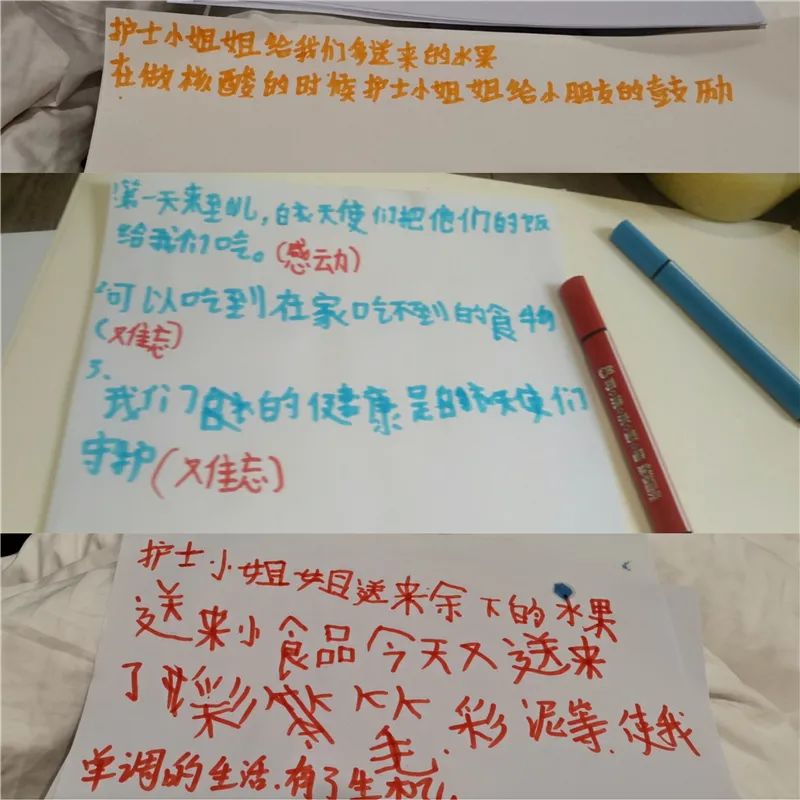 护士小姐姐给我们多送来的水果
在做核酸的时候护士小姐姐给小朋友的鼓励
第一天来到这儿,白衣天使们把他们的饭
给我们吃。(感动)
2.可以吃到在家吃不到的食物
(难忘)
3.
我们的健康是白衣天使们
守护(难忘)
护士小姐姐送来余下的水果
送来小食品今天又送来
了彩
毛
彩泥等,使我
单调的生活.有了生机